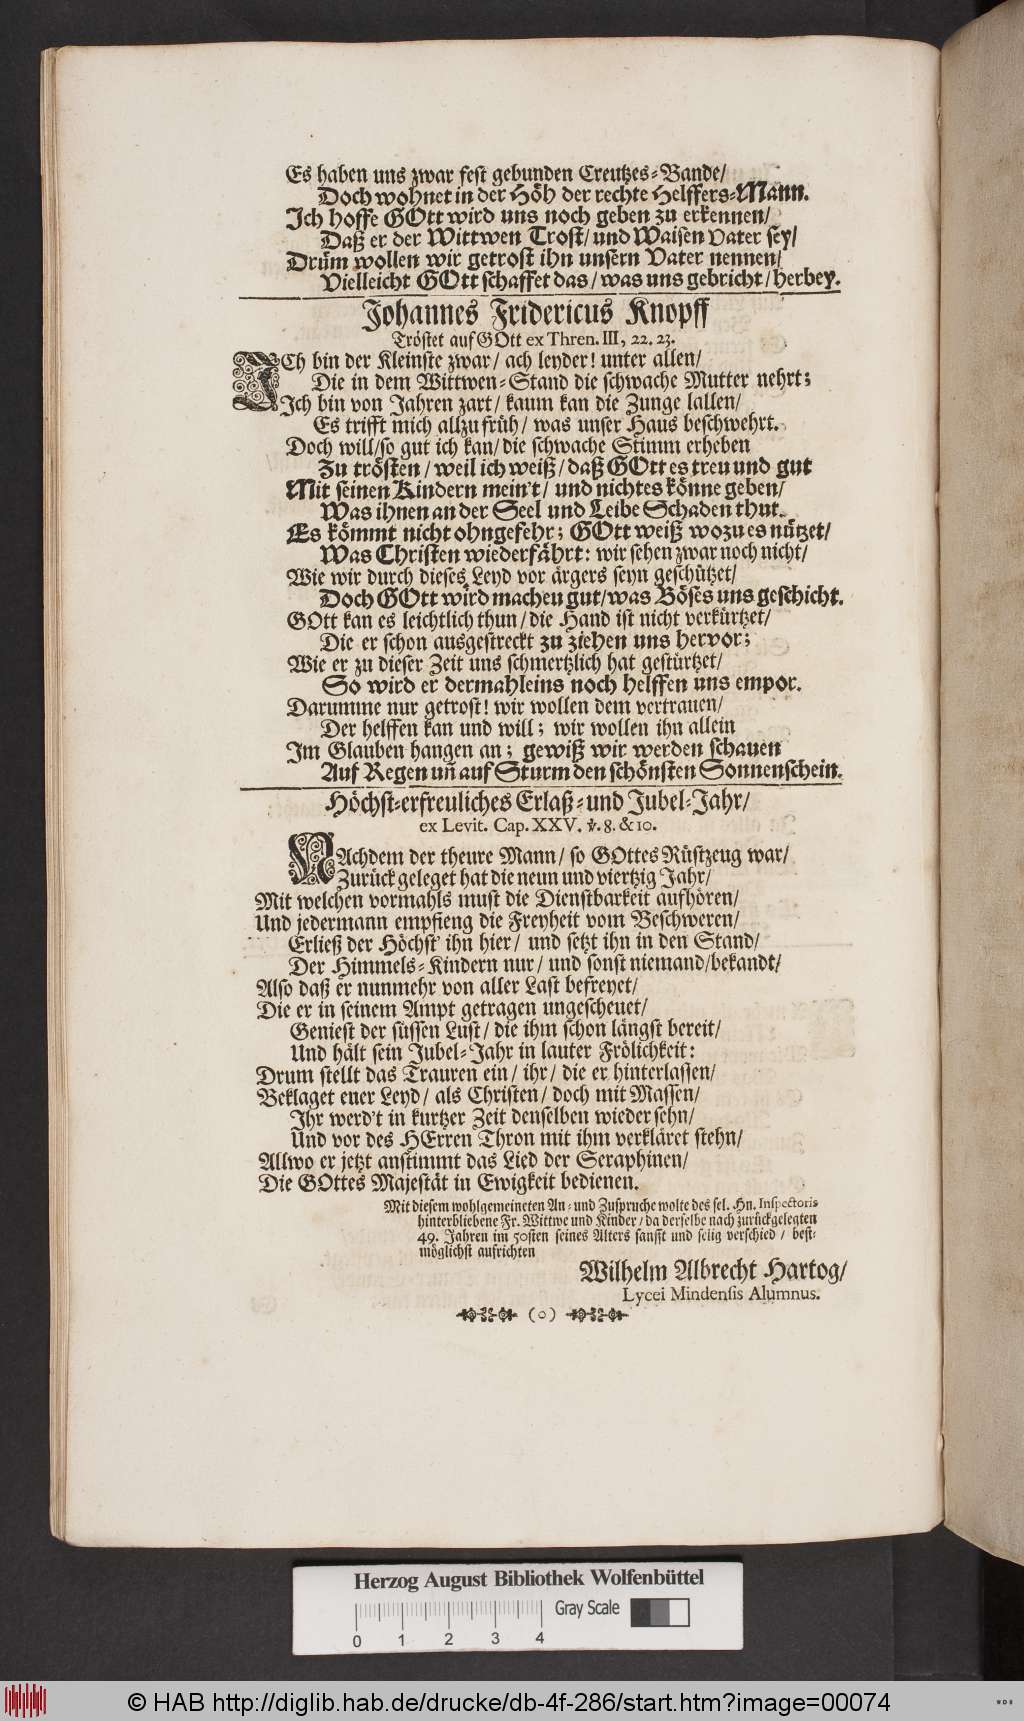 Es haben uns zwar fest gebunden Creutzes-Bande/
Doch wohnet in der Höh der rechte Helffers-Mann.
Ich hoffe GOtt wird uns noch geben zu erkennen/
Daß er der Wittwen Trost/ und Waisen Vater sey/
Drüm wollen wir getrost ihn unsern Vater nennen/
Vielleicht GOtt schaffet das/ was uns gebricht/ herbey.
Johannes Fridericus Knopff
Tröstet auf GOtt ex Thren. III, 22. 23.
ICh bin der Kleinste zwar/ ach leyder! unter allen/
Die in dem Wittwen-Stand die schwache Mutter nehrt;
Ich bin von Jahren zart/ kaum kan die Zunge lallen/
Es trifft mich allzu früh/ was unser Haus beschwehrt.
Doch will/ so gut ich kan/ die schwache Stimm erheben
Zu trösten/ weil ich weiß/ daß GOtt es treu und gut
Mit seinen Kindern mein't/ und nichtes könne geben/
Was ihnen an der Seel und Leibe Schaden thut.
Es kömmt nicht ohngefehr; GOtt weiß wozu es nützet/
Was Christen wiederfährt: wir sehen zwar noch nicht/
Wie wir durch dieses Leyd vor ärgers seyn geschützet/
Doch GOtt wird machen gut/ was Böses uns geschicht.
GOtt kan es leichtlich thun/ die Hand ist nicht verkürtzet/
Die er schon ausgestreckt zu ziehen uns hervor;
Wie er zu dieser Zeit uns schmertzlich hat gestürtzet/
So wird er dermahleins noch helffen uns empor.
Darumme nur getrost! wir wollen dem vertrauen/
Der helffen kan und will; wir wollen ihn allein
Im Glauben hangen an; gewiß wir werden schauen
Auf Regen uñ auf Sturm den schönsten Sonnenschein.
Höchst-erfreuliches Erlaß- und Jubel-Jahr/
ex Levit. Cap. XXV. ꝟ. 8. & 10.
NAchdem der theure Mann/ so GOttes Rüstzeug war/
Zurück geleget hat die neun und viertzig Jahr/
Mit welchen vormahls must die Dienstbarkeit aufhören/
Und jedermann empfieng die Freyheit vom Beschweren/
Erließ der Höchst' ihn hier/ und setzt ihn in den Stand/
Der Himmels-Kindern nur/ und sonst niemand/ bekandt/
Also daß er nunmehr von aller Last befreyet/
Die er in seinem Ampt getragen ungescheuet/
Geniest der süssen Lust/ die ihm schon längst bereit/
Und hält sein Jubel-Jahr in lauter Frölichkeit:
Drum stellt das Trauren ein/ ihr/ die er hinterlassen/
Beklaget euer Leyd/ als Christen/ doch mit Massen/
Ihr werd't in kurtzer Zeit denselben wieder sehn/
Und vor des HErren Thron mit ihm verkläret stehn/
Allwo er jetzt anstimmt das Lied der Seraphinen/
Die GOttes Majestät in Ewigkeit bedienen.
Mit diesem wohlgemeineten An- und Zuspruche wolte des sel. Hn. Inspectoris
hinterbliebene Fr. Wittwe und Kinder/ da derselbe nach zurückgelegten
49. Jahren im 50sten seines Alters sansft und selig verschied/ best-
möglichst aufrichten
Wilhelm Albrecht Hartog/
Lycei Mindensis Alumnus.
(o)
Herzog August Bibliothek Wolfenbüttel
Gray Scale
0 1 2 3 4
© HAB http://diglib.hab.de/drucke/db-4f-286/start.htm?image=00074